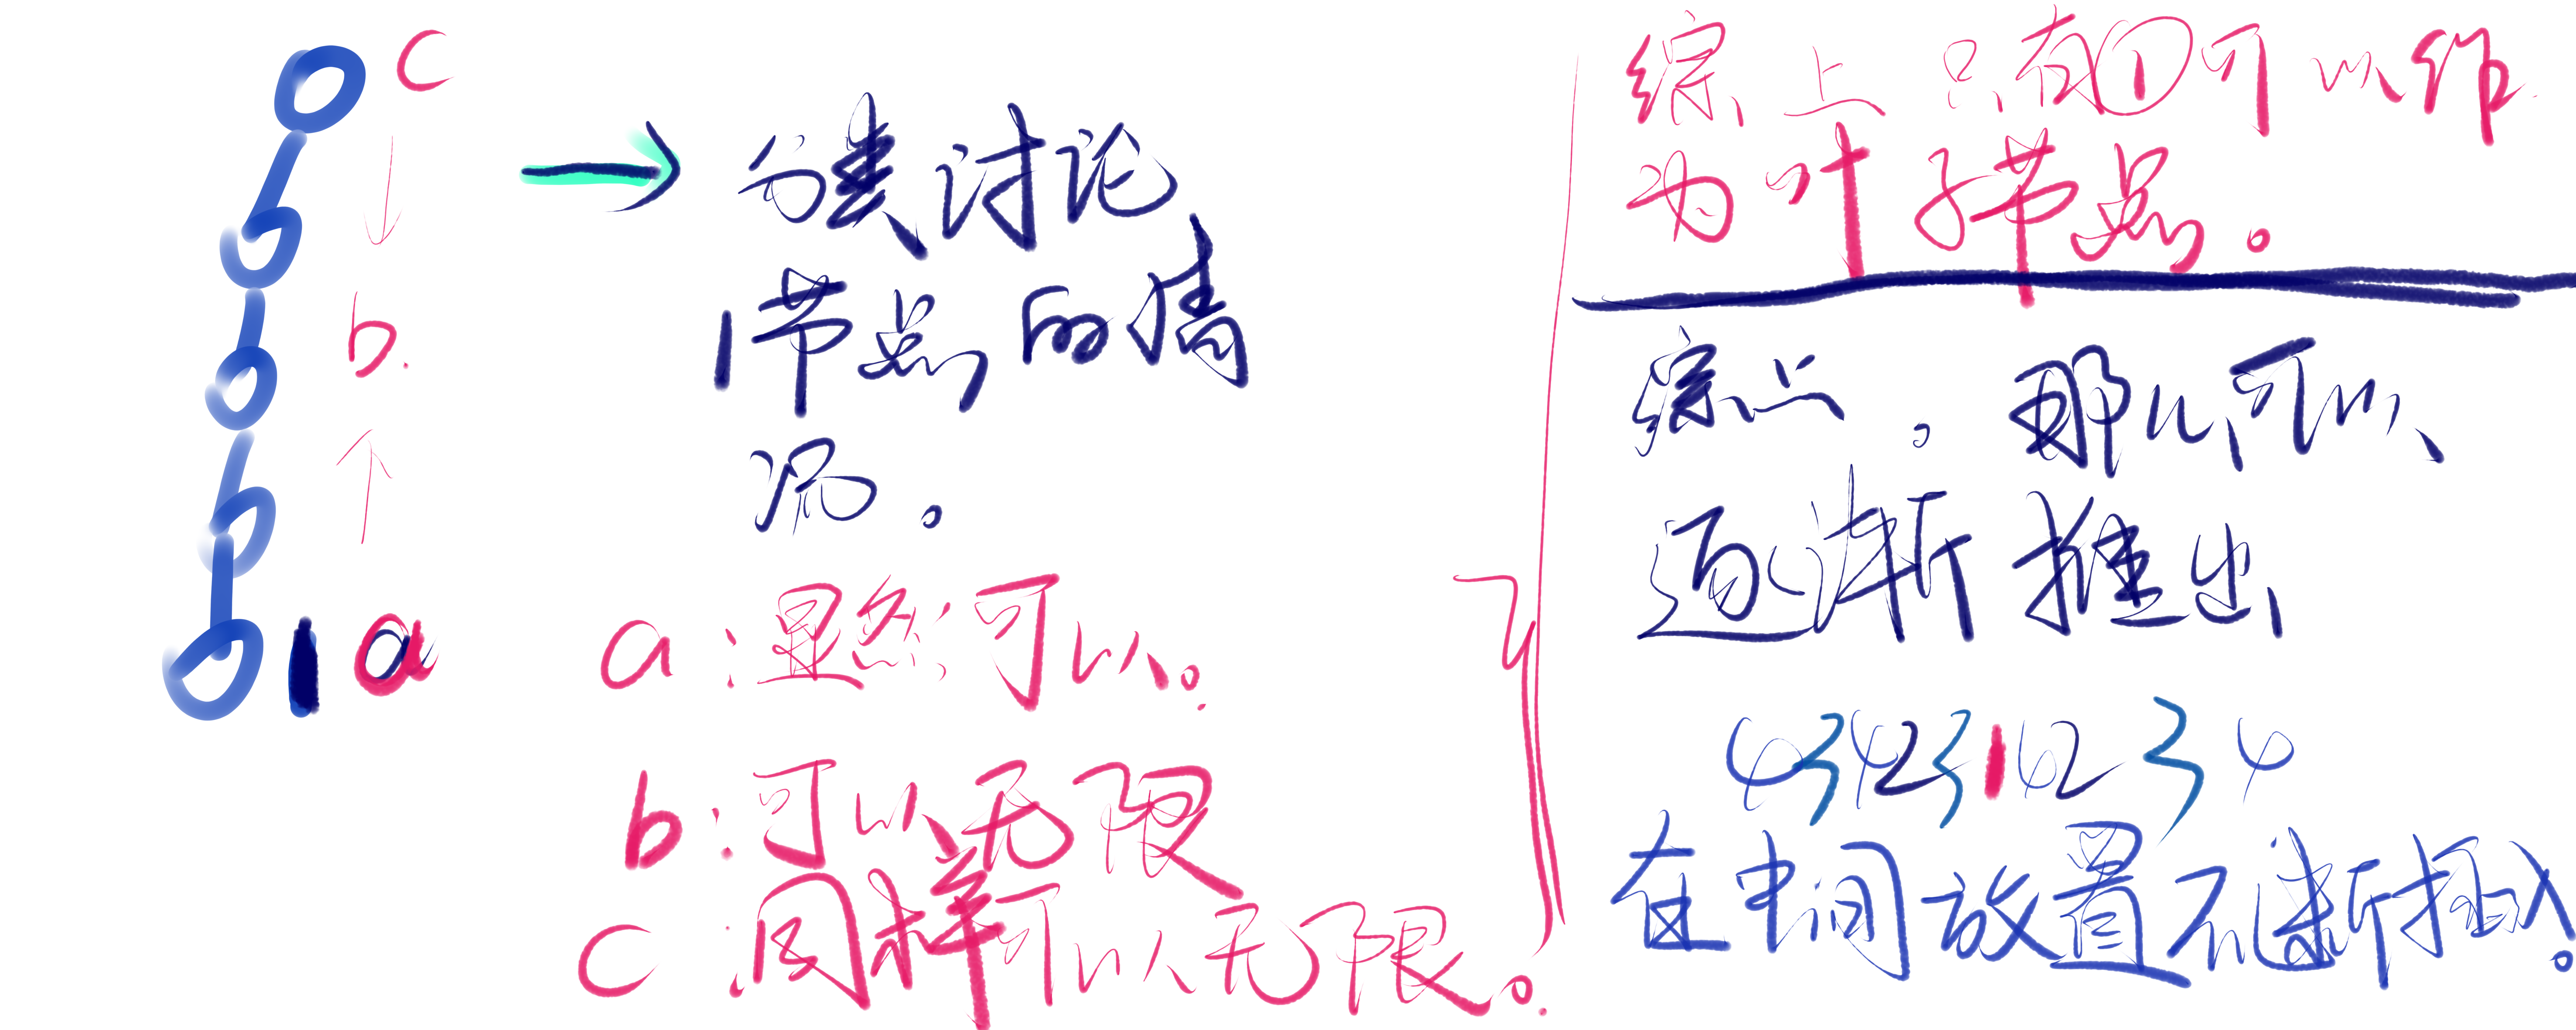 c
b.
1 a
分类讨论
1节点的情
况。
a:显然可以。
b:可以无限
c:同样可以无限。
综上只有①可以作
为叶子节点。
综上。那么可以
逐渐推出
4342314234
在中间放置不断插入。